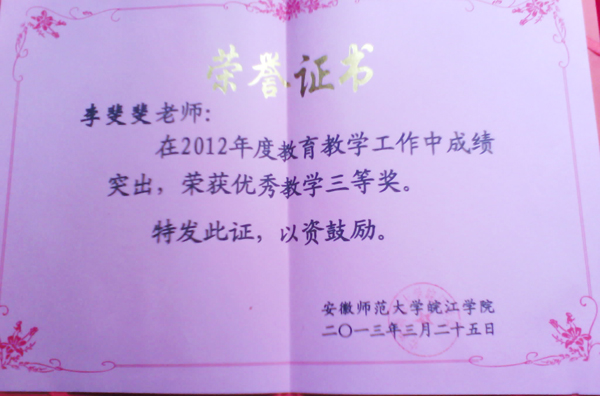 荣誉证书
李斐斐老师：
在2012年度教育教学工作中成绩
突出，荣获优秀教学三等奖。
特发此证，以资鼓励。
安徽师范大学皖江学院
二〇一三年三月二十五日